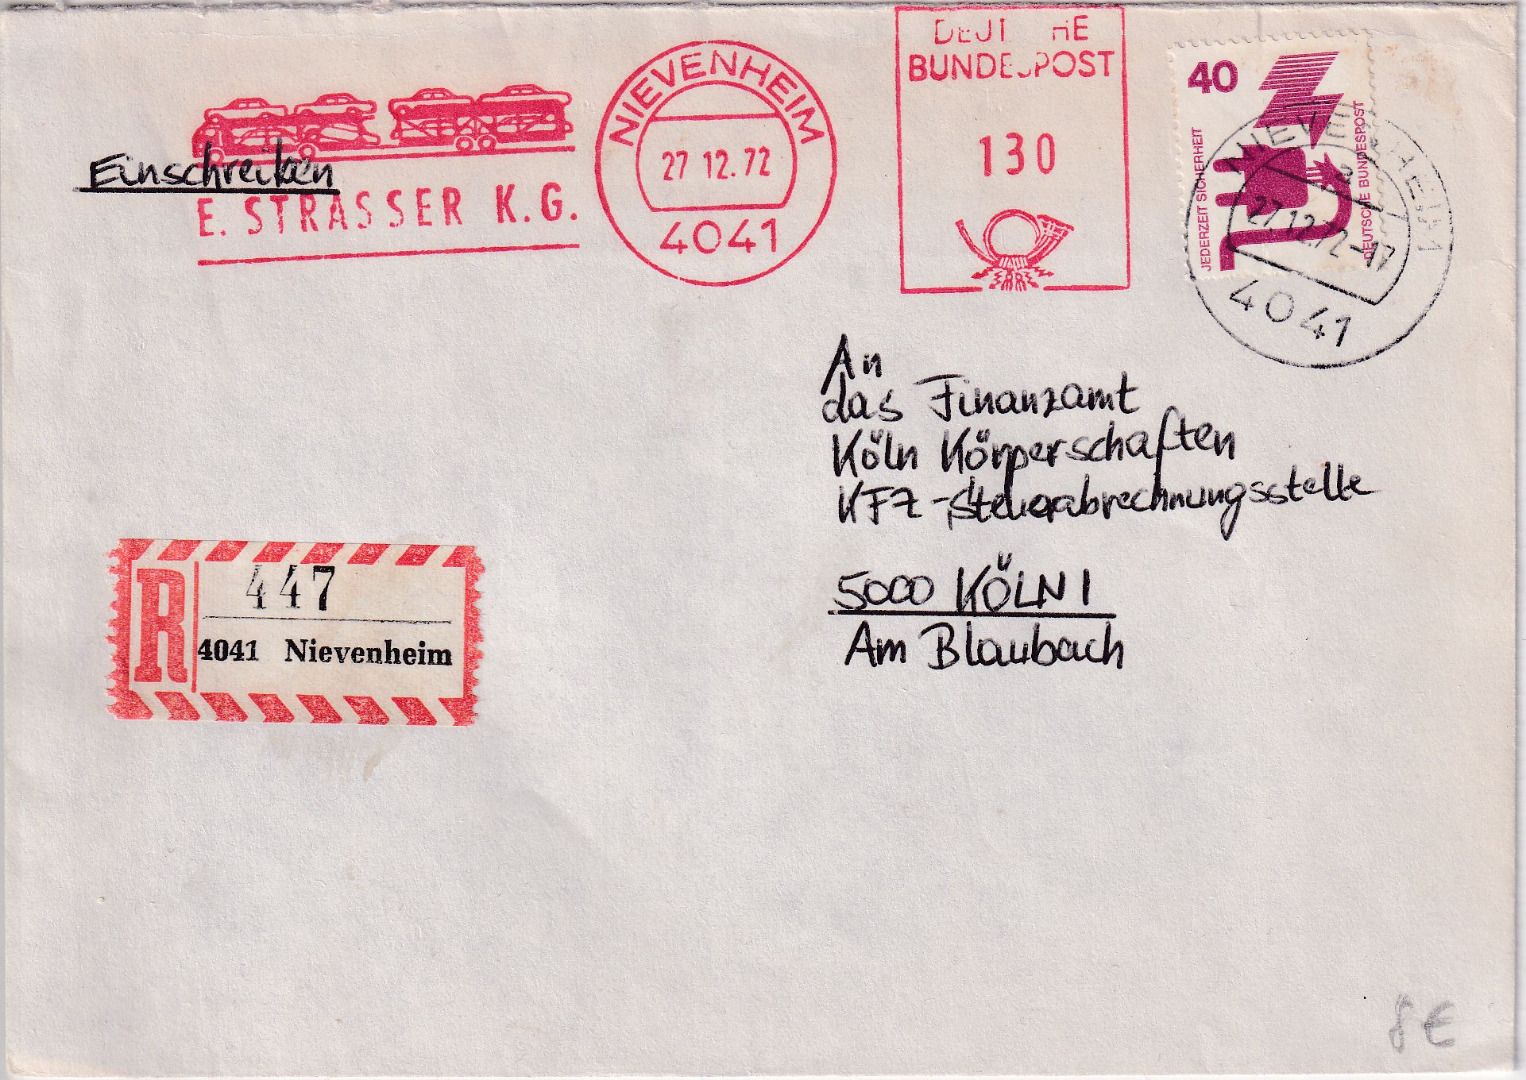 Einschreiben
E. STRASSER K.G.
NIEVENHEIM
27 12. 72
4041
DEUTSCHE
BUNDESPOST
130
40
JEDERZEIT SICHERHEIT
DEUTSCHE BUNDESPOST
NIEVENHEIM
a
27.12.72-17
4041
An
das Finanzamt
Köln Körperschaften
KFZ-Steuerabrechnungsstelle
5000 KÖLN 1
Am Blaubach
R
447
4041 Nievenheim
8€